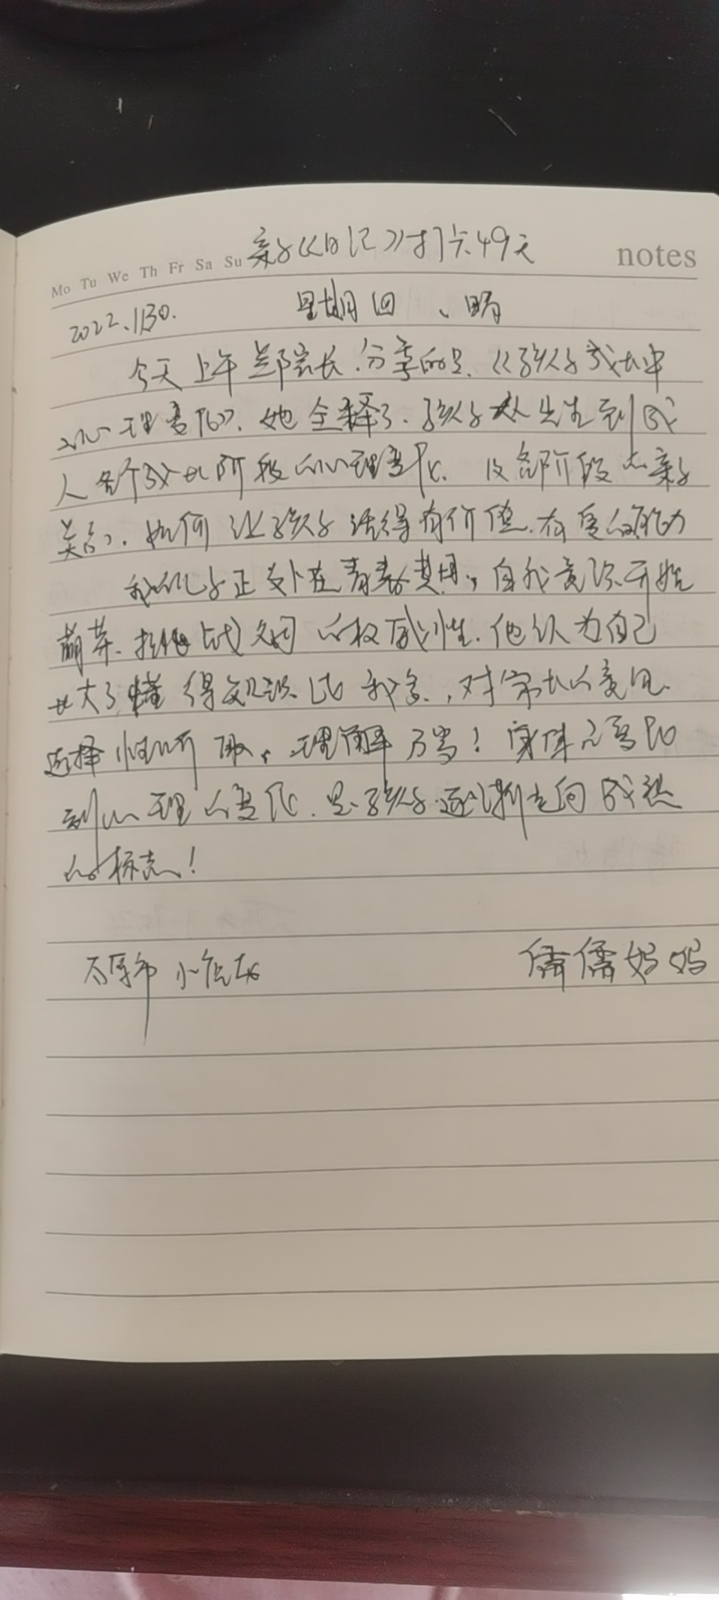 Mo Tu We Th Fr Sa Su 亲子《日记》打卡49天 notes
2022.1.30. 星期四、晴
今天上午郑家长.分享的是.《孩子成长中
心理变化》.她全释了.孩子从先生到成
人各个成长阶段的心理变化.及各阶段的亲子
关系.如何让孩子活得有价值.有自的能力
我儿子正处在青春期,自我意识开始
萌芽.挑战父母的权威性.他认为自己
长大了懂得知识比我多,对家长的意见
选择性听取,理解万岁!身体
到心理的变化.是孩子逐渐走向成熟
的标志!
太原市 儒儒妈妈